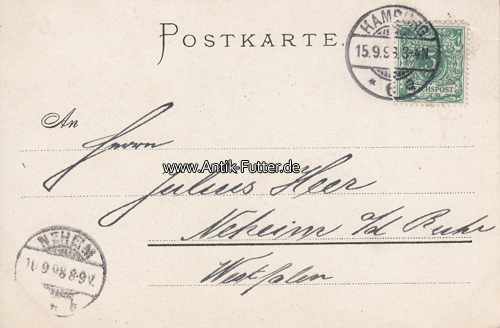 POSTKARTE.
HAMBURG
15.9.98.3-4N.
* 6 a
REICHSPOST
An
Herrn
www.Antik-Futter.de
Julius Heer
Neheim a/d Ruhr
Westfalen
NEHEIM
16 9 98.8-9V.